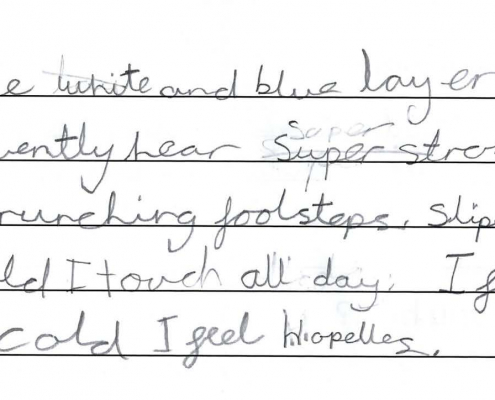 e white and blue layer
ently hear Super stro
runching footsteps. Slip
ld I touch all day. I f
cold I feel hiopelles.